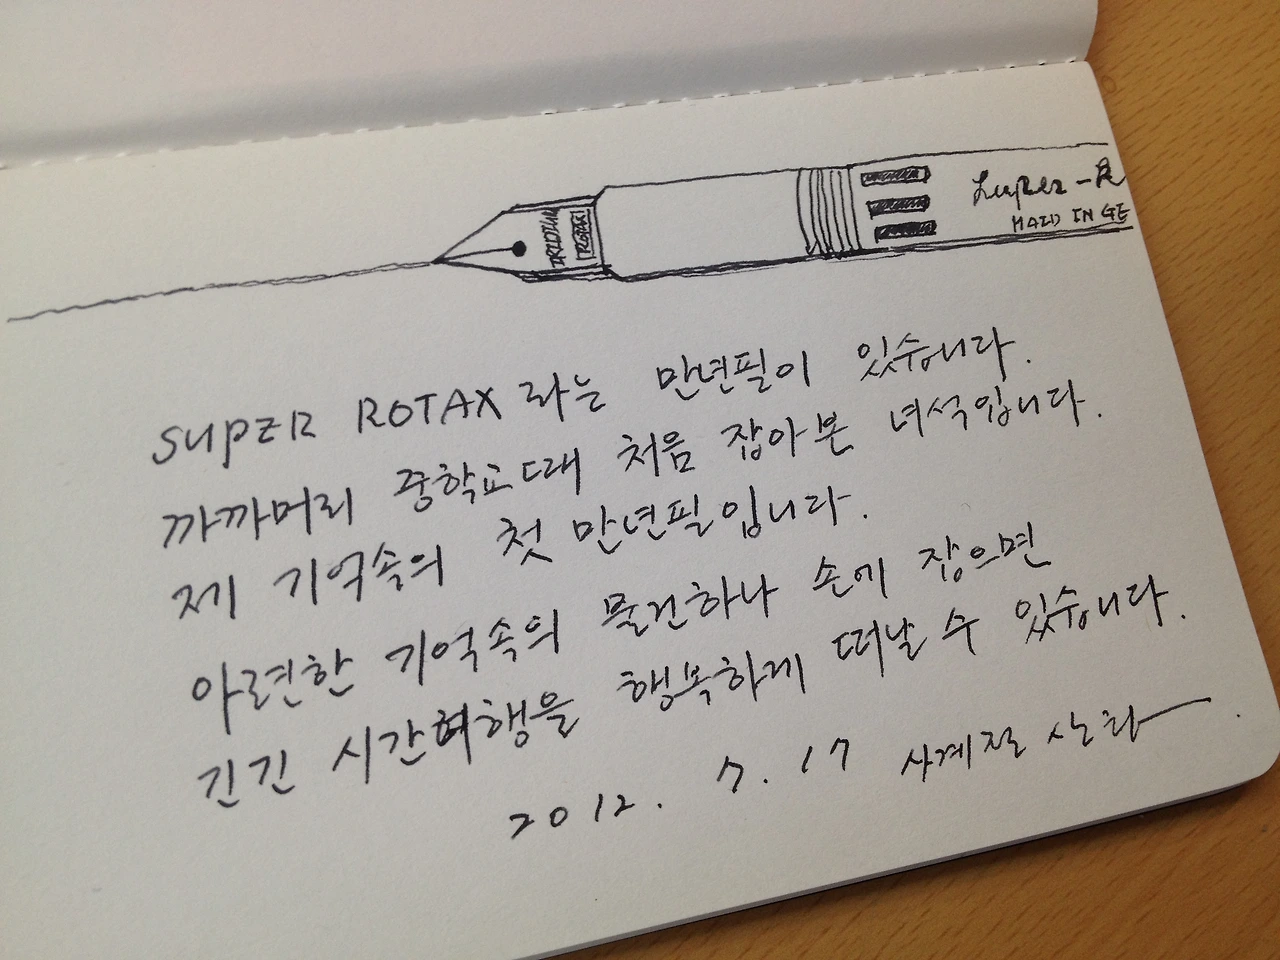 Super-R
MAED IN GE
SUPER ROTAX 라는 만년필이 있습니다.
까까머리 중학교때 처음 잡아본 녀석입니다.
제 기억속의 첫 만년필입니다.
아련한 기억속의 물건하나 손에 잡으면
긴긴 시간여행을 행복하게 떠날 수 있습니다.
2012. 7. 17 사계절 산화